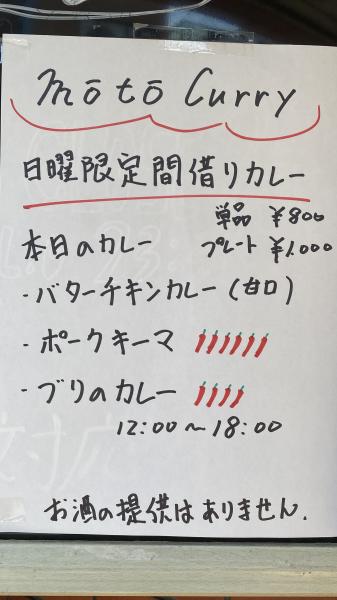 mōtō Curry
日曜限定間借りカレー
単品 ¥800
本日のカレー プレート ¥1.000
・バターチキンカレー(甘口)
・ポークキーマ
・ブリのカレー
12:00〜18:00
お酒の提供はありません.